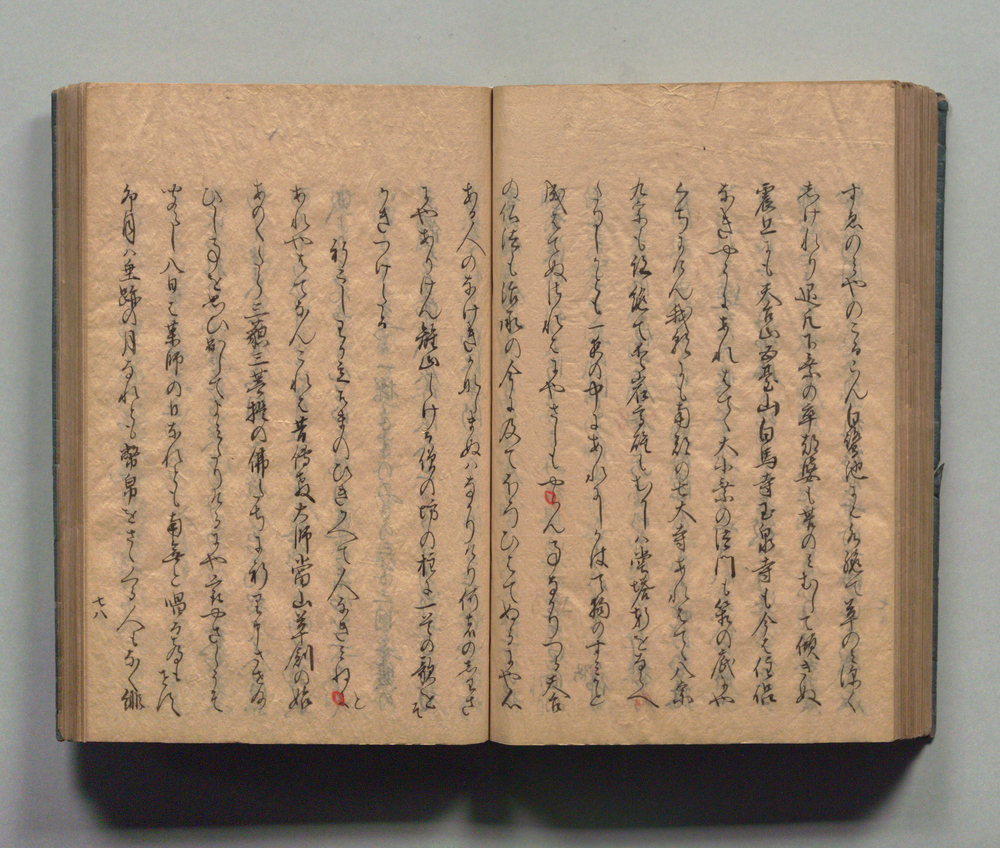 すゑのをやのこるらん白鷺池にも水絶て草のみ深く
しけれり退凡下乗の卒都婆も苔のみむして傾きぬ
震旦にも天台山五臺山白馬寺玉泉寺も今は住侶
なきやうにあれはてゝ大小乗の法門も箱の底にや
くちぬらん我朝にも南都の七大寺あれはてゝ八宗
九宗も跡絶て愛宕高雄もむかしは堂塔軒をならへ
たりしかとも一夜の中にあれにしかは天狗のすみかと
成はてぬされはにやさしもやんことなかりつる天台
の仏法も治承の今に及てほろひはてぬるにや心
ある人のなけきかなしまぬはなかりけり何者のしわさ
にやありけん離山しける僧の坊の柱に一首の歌をそ
かきつけける
祈こし我立杣のひきかへて人なきみねと
あれやはてなんこれは昔傳教大師當山草創の始
あのくたら三藐三菩提の佛たちに祈り申させ給
ひし事を思ひ出してよみたりけるにやいとやさしうそ
聞えし八日は薬師の日なれとも南無と唱る声もせす
卯月は垂跡の月なれとも幣帛をさゝくる人もなく緋
七八